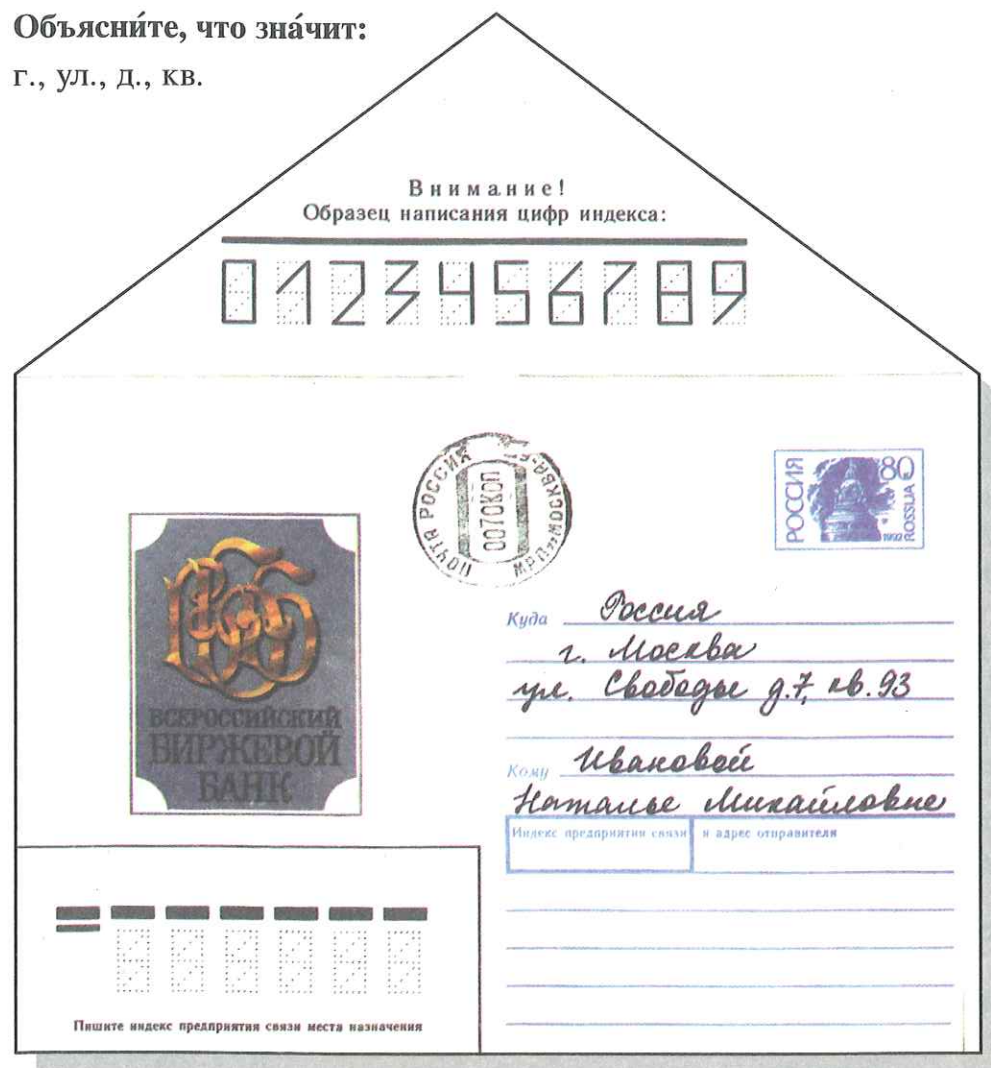 Объясни́те, что зна́чит:
г., ул., д., кв.
Внимание!
Образец написания цифр индекса:
0123456789
ПОЧТА РОССИИ
МОСКВА
РОССИЯ
80
1992
ROSSIJA
ВСЕРОССИЙСКИЙ
БИРЖЕВОЙ
БАНК
Куда Россия
г. Москва
ул. Свободы д.7, кв. 93
Кому Ивановой
Наталье Михайловне
Индекс предприятия связи и адрес отправителя
Пишите индекс предприятия связи места назначения